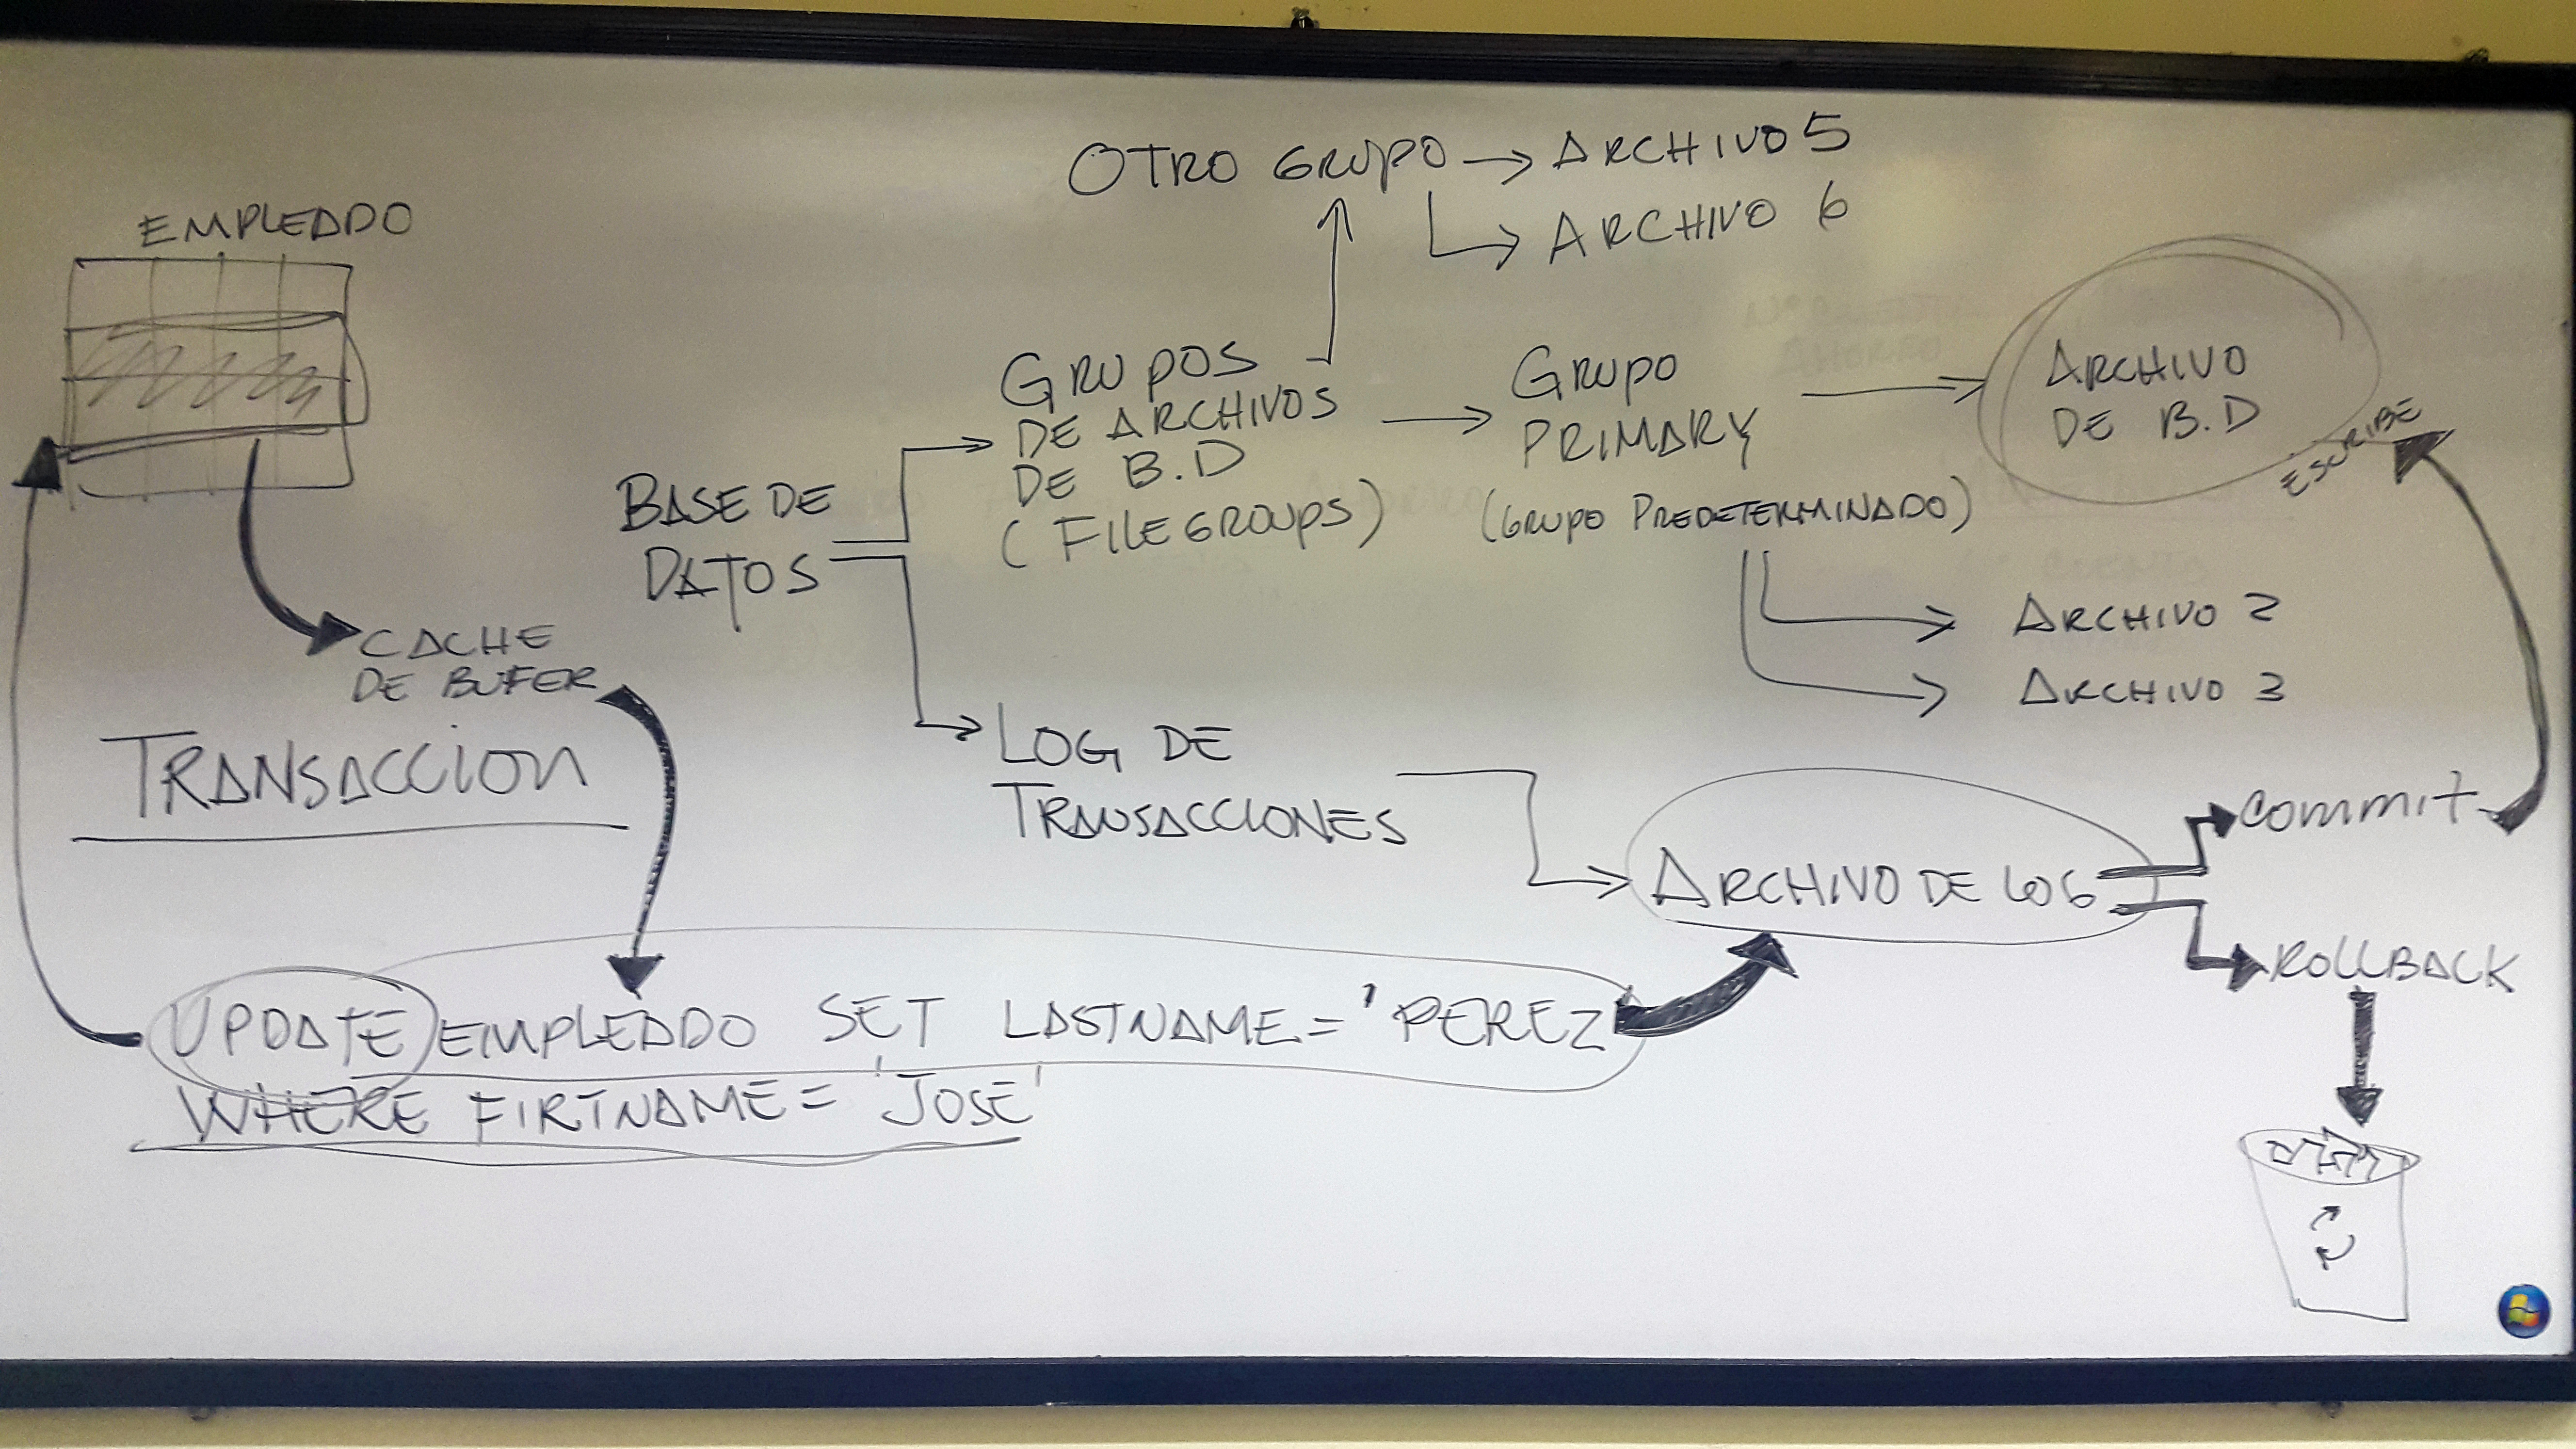 OTRO GRUPO → ARCHIVO 5
ARCHIVO 6
EMPLEADO
GRUPOS
DE ARCHIVOS
DE B.D
(FILEGROUPS)
GRUPO
PRIMARY
(GRUPO PREDETERMINADO)
ARCHIVO
DE B.D
ESCRIBE
BASE DE
DATOS
ARCHIVO 2
ARCHIVO 3
CACHE
DE BUFER
TRANSACCION
LOG DE
TRANSACCIONES
ARCHIVO DE LOG
COMMIT
ROLLBACK
UPDATE EMPLEADO SET LASTNAME = 'PEREZ
WHERE FIRTNAME = 'JOSE'